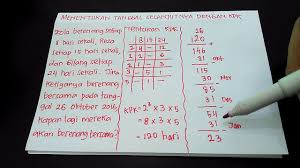 MENENTUKAN TANGGAL SELANJUTNYA DENGAN KPK
Zola berenang setiap
8 hari sekali, Reza
setiap 15 hari sekali,
dan Elang setiap
24 hari sekali. Jika
Ketiganya berenang
bersama pada tang-
gal 26 oktober 2016,
Kapan lagi mereka
akan berenang bersama?
Tentukan KPK
8 15 24
KPK = 2³ x 3 x 5
= 8 x 3 x 5
= 120 hari
26
120 +
146
31
115
30 Nov
85
31 Des
54
31 Jan
23